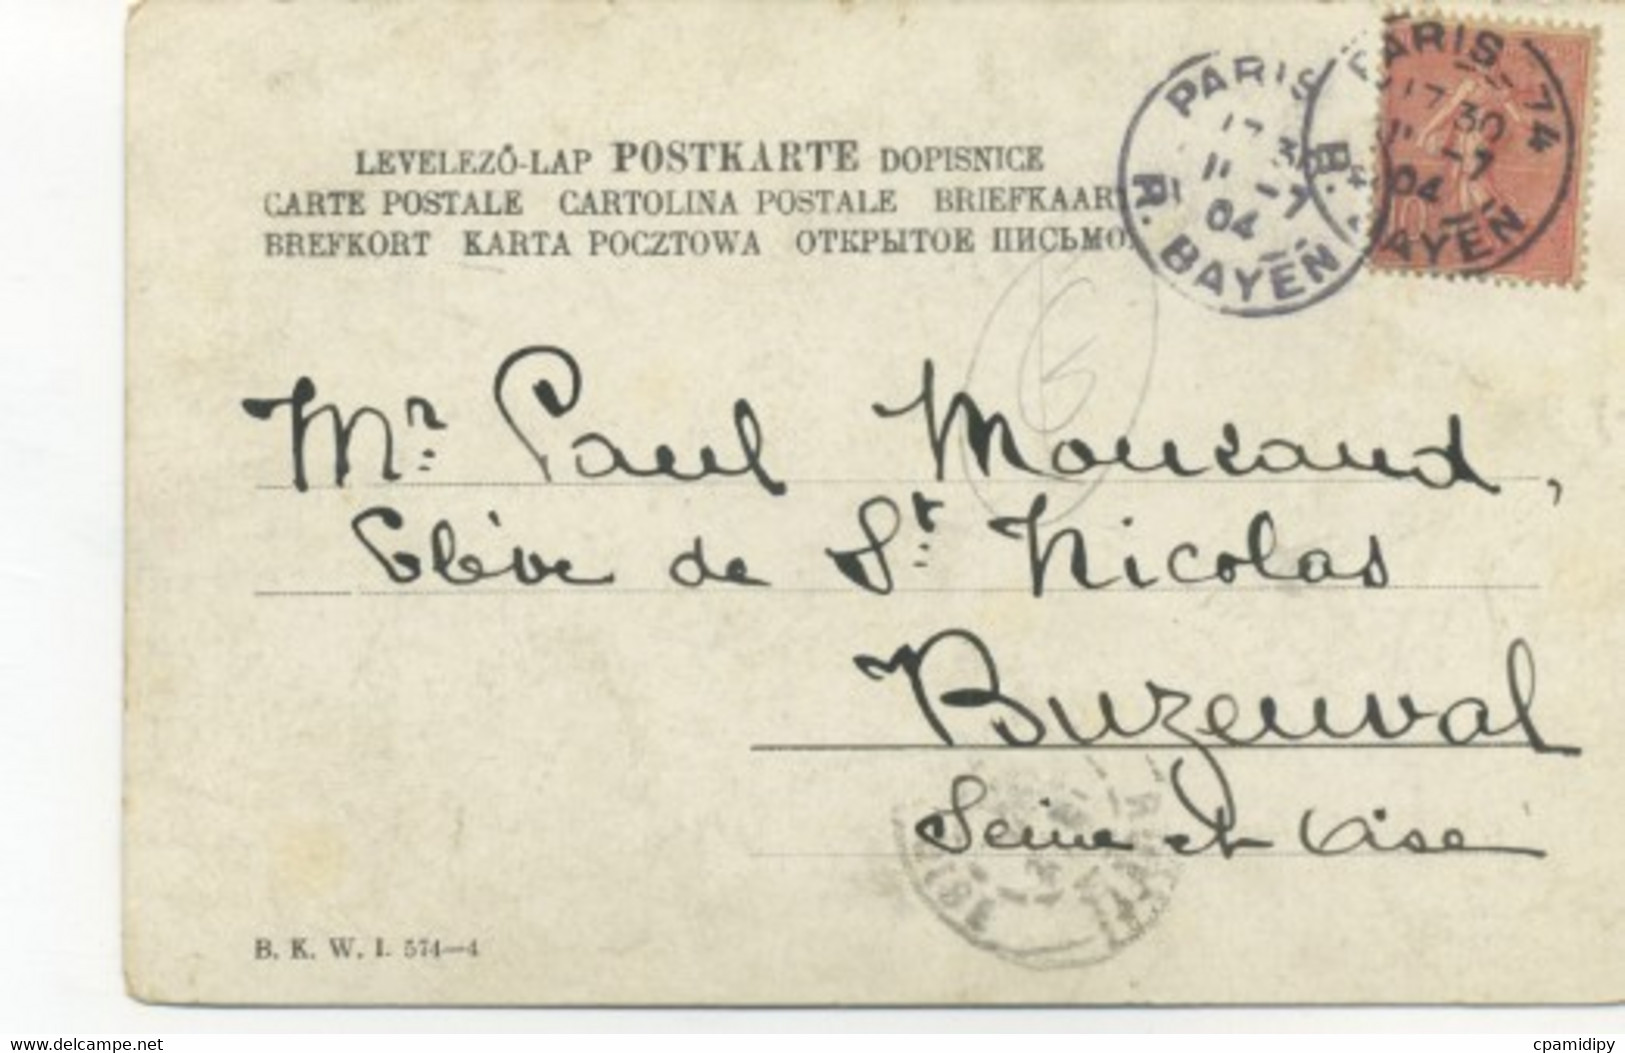 LEVELEZŐ-LAP POSTKARTE DOPISNICE
CARTE POSTALE CARTOLINA POSTALE BRIEFKAART
BREFKORT KARTA POCZTOWA ОТКРЫТОЕ ПИСЬМО
PARIS
17 30
11 -7
04
R. BAYEN
PARIS 74
17 30
11 -7
04
R. BAYEN
10
6
Mr. Paul Mouzaud,
Elève de St. Nicolas
Buzenval
Seine et Oise
B. K. W. I. 574—4
www.delcampe.net
cpamidipy